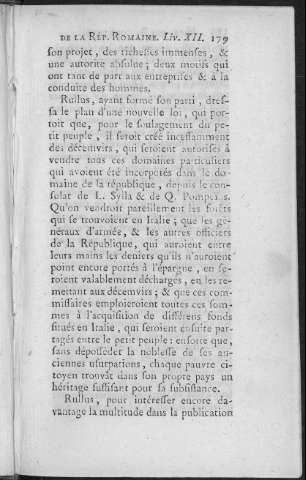 DE LA RÉP. ROMAINE. Liv. XII. 179
son projet, des richesses immenses, &
une autorité absolue; deux motifs qui
ont tant de part aux entreprises & à la
conduite des hommes.
Rullus, ayant formé son parti, dres-
sa le plan d'une nouvelle loi, qui por-
toit que, pour le soulagement du pe-
tit peuple, il seroit créé incessamment
des décemvirs, qui seroient autorisés à
vendre tous ces domaines particuliers
qui avoient été incorporés dans le do-
maine de la république, depuis le con-
solat de L. Sylla & de Q. Pompeius.
Qu'on vendroit pareillement les forêts
qui se trouvoient en Italie; que les gé-
néraux d'armée, & les autres officiers
de la République, qui auroient entre
leurs mains les deniers qu'ils n'auroient
point encore portés à l'épargne, en se-
roient valablement déchargés, en les re-
mettant aux décemvirs; & que ces com-
missaires emploieroient toutes ces som-
mes à l'acquisition de différens fonds
situés en Italie, qui seroient ensuite par-
tagés entre le petit peuple: ensorte que,
sans déposséder la noblesse de ses an-
ciennes usurpations, chaque pauvre ci-
toyen trouvât dans son propre pays un
héritage suffisant pour sa subsistance.
Rullus, pour intéresser encore da-
vantage la multitude dans la publication